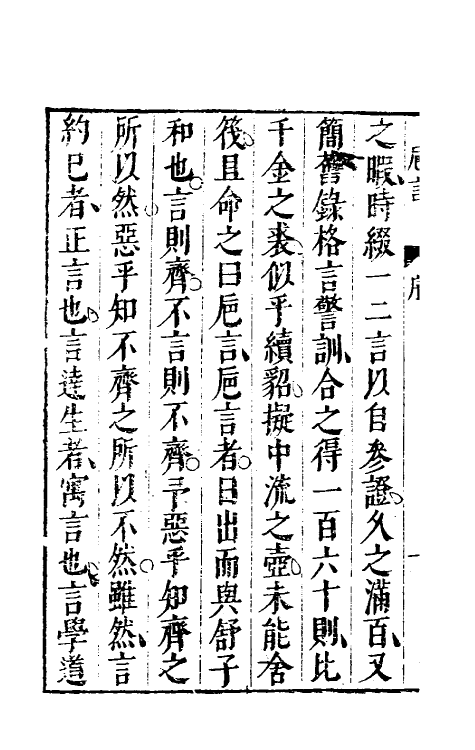 之暇、時綴一二言以自參證。久之滿百、又
簡舊錄格言警訓、合之得一百六十則、比
千金之裘、似乎續貂。擬中流之壺。未能舍
筏。且命之曰巵言、巵言者。日出而與舒子
和也。言則齊。不言則不齊。予惡乎知齊之
所以然。惡乎知不齊之所以不然。雖然、言
約已者、正言也。言達生者、寓言也。言學道